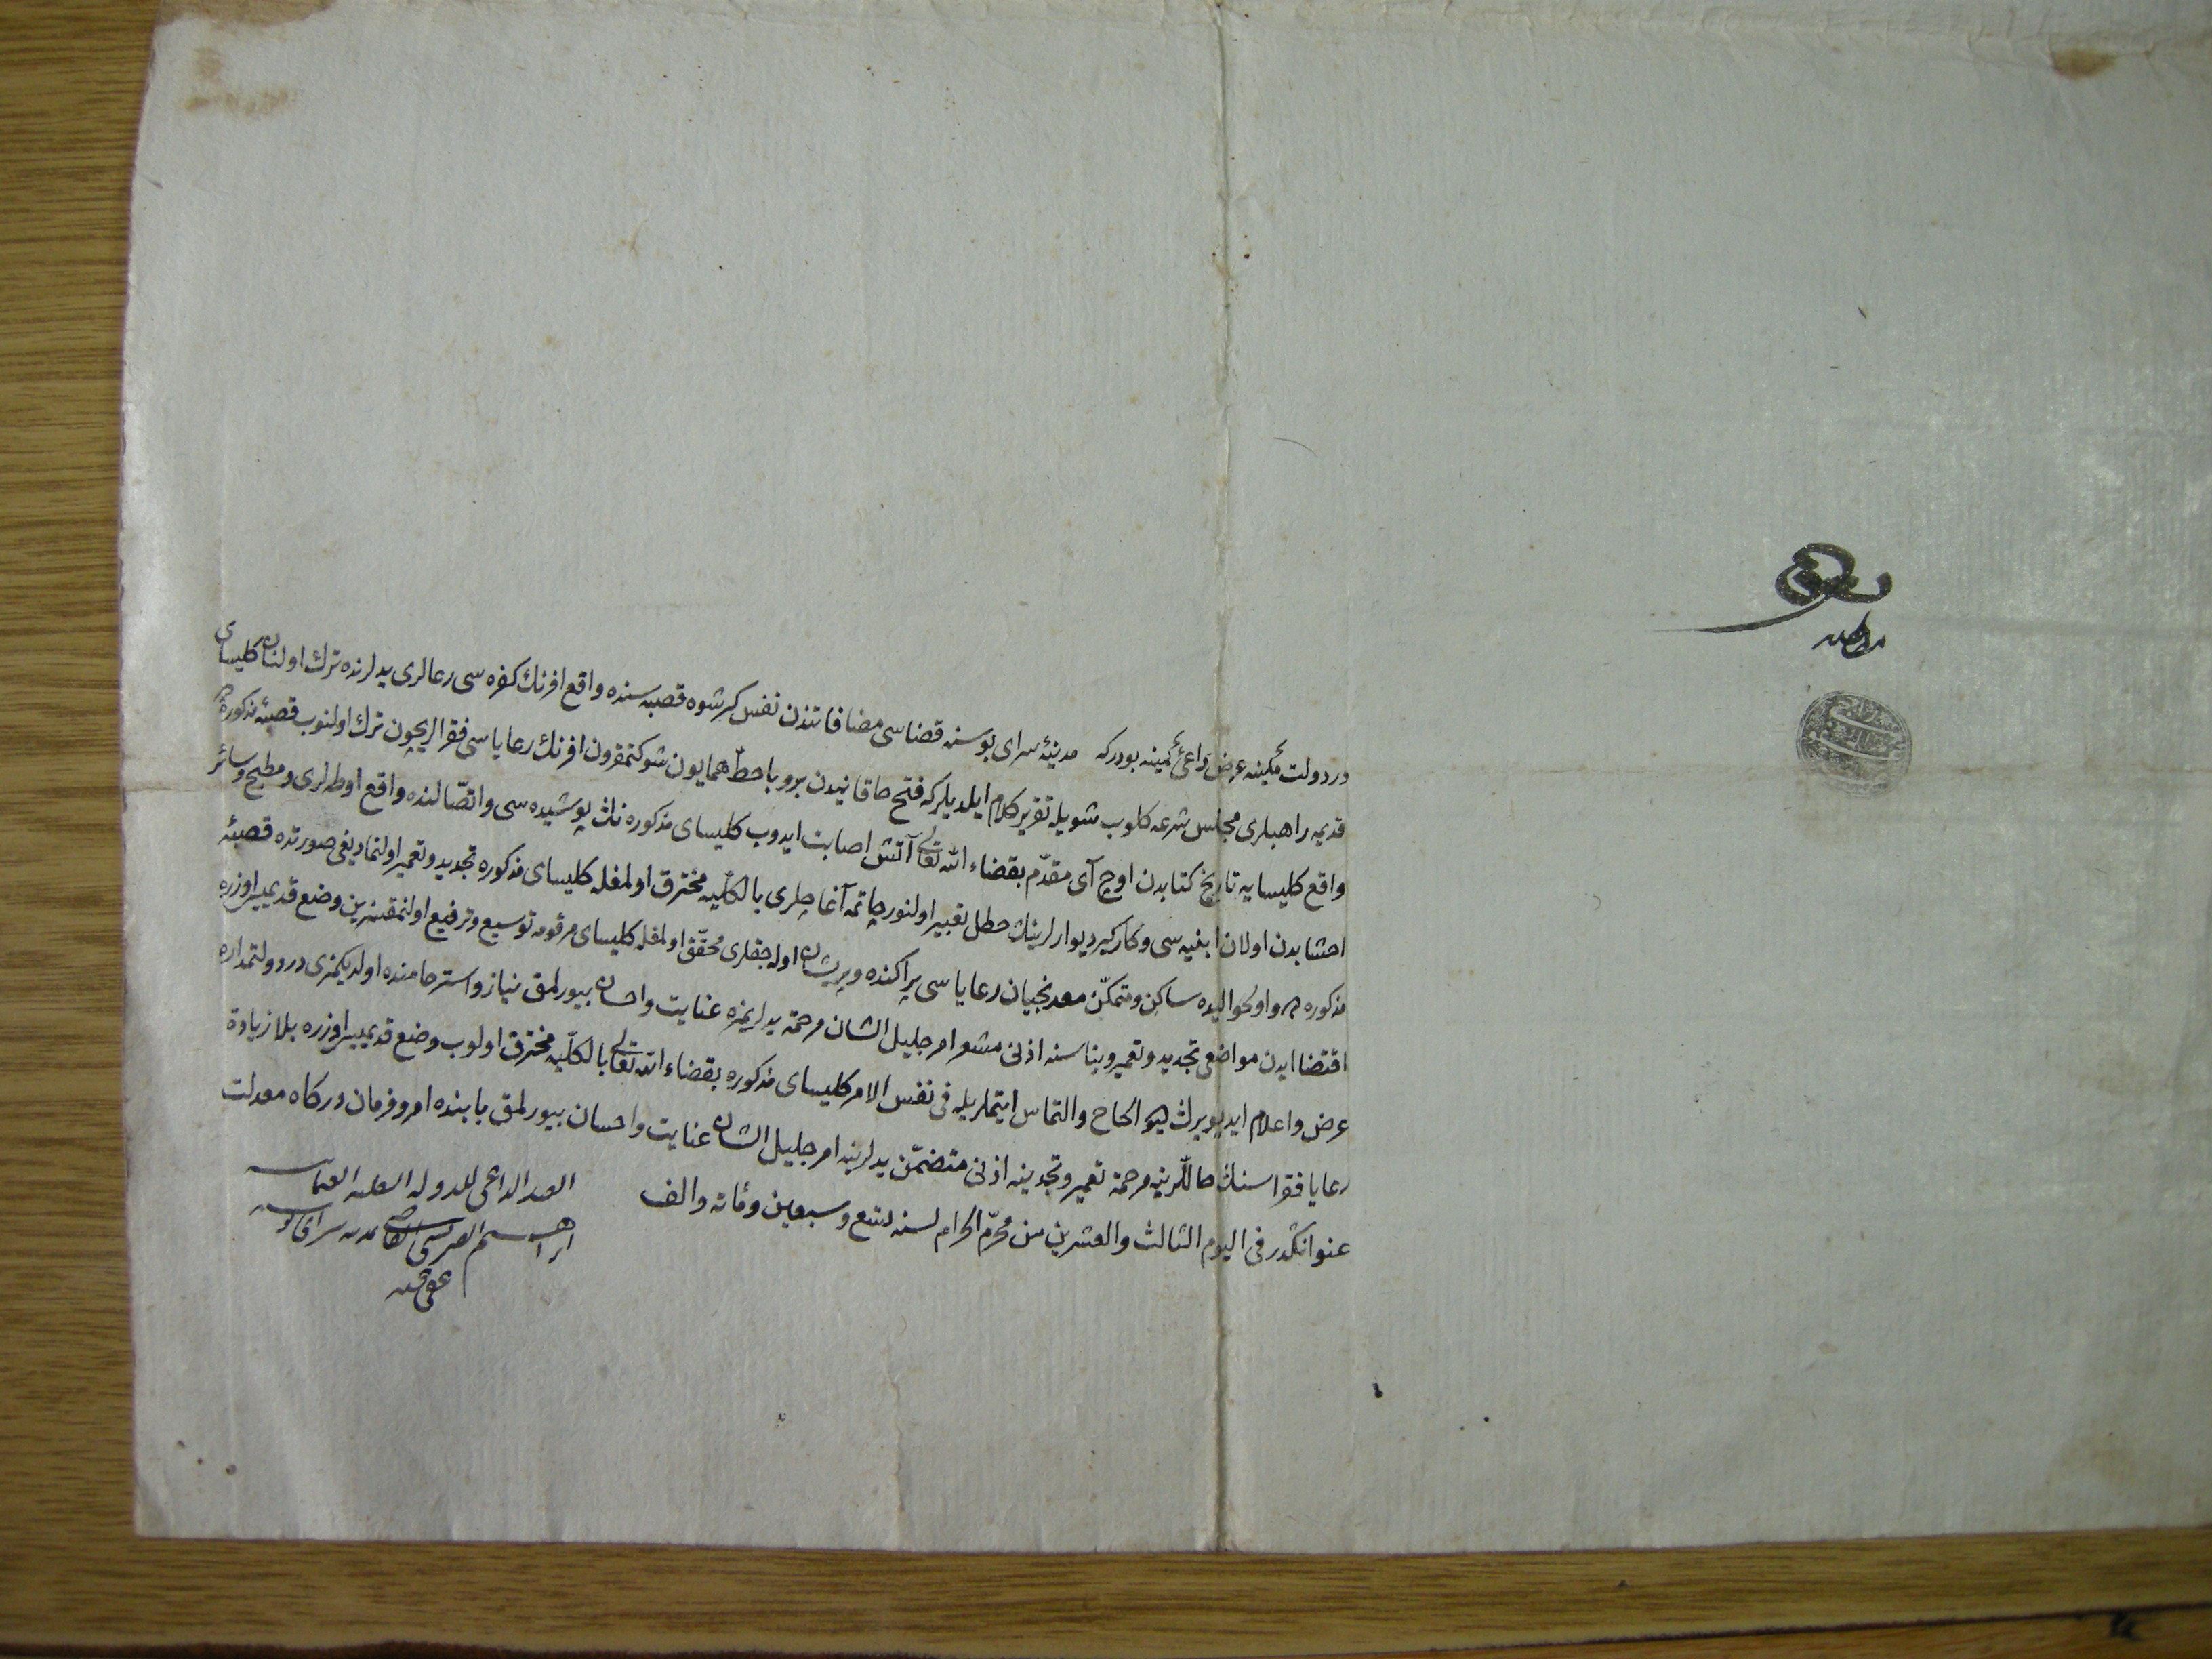 در دولت مكینه عرض داعئ كمینه بودركه مدینهٔ سرای بوسنه قضاسی مضافاتندن نفس كرشوه قصبه سنده واقع افرنك كفره سی رعالری یدلرنده ترك اولنان كلیسای
قدیمه راهبلری مجلس شرعه كلوب شویله تقریر كلام ایلدیلركه فتح خاقانیدن برو با خط همایون شوكتمقرون افرنك رعایاسی فقرالریچون ترك اولنوب قصبهٔ مذكوره ده
واقع كلیسایه تاریخ كتابدن اوچ آی مقدّم بقضاء الله تعالی آتش اصابت ایدوب كلیسای مذكوره نك پوشیده سی واتصّالنده واقع اوطه لری ومطبخ وسائر
اخشابدن اولان ابنیه سی وكاركیر دیوارلرینك خطل تعبیر اولنور چاتمه آغاجلری بالكلّیه محترق اولمغله كلیسای مذكوره تجدید وتعمیر اولنمادیغی صورتده قصبهٔ
مذكوره ده واولحوالیده ساكن ومتمكّن معدنجیان رعایاسی پراكنده وپریشان اوله جقلری محقّق اولمغله كلیسای مرقومه توسیع وترفیع اولنمقسزین وضع قدیمیسی اوزره
اقتضا ایدن مواضعی تجدید وتعمیر وبناسنه اذنی مشعر امر جلیل الشان مرحمة یدلریمزه عنایت واحسان بیورلمق نیاز واسترحامنده اولدیكمزی در دولتمداره
عرض واعلام ایدیویرك دیو الحاح والتماس ایتملریله فی نفس الامر كلیسای مذكوره بقضاء الله تعالی بالكلّیه محترق اولوب وضع قدیمیسی اوزره بلا زیادة
رعایا فقراسنك حاللرینه مرحمة تعمیر وتجدینه اذنی متضمّن یدلرینه امر جلیل الشان عنایت واحسان بیورلمق بابنده امر وفرمان دركاه معدلت
عنوانكدر فی الیوم الثالث والعشرین من محرّم الحرام لسنه تسع وسبعین ومائه والف
العبد الداعی للدوله العلیه العثمانیه
ابراهیم القاضی بمدینه سرای بوسنه
عفی عنه